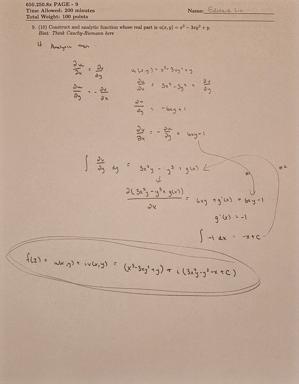 650.250.8x PAGE - 9
Time Allowed: 200 minutes
Total Weight: 100 points
Name:
9. (10) Construct and analytic function whose real part is u(x, y) = x³ - 3xy² + y.
Hint: Think Cauchy-Riemann here
If Analytic then
∂u/∂x = ∂v/∂y
∂u/∂y = - ∂v/∂x
u(x,y) = x³-3xy²+y
∂u/∂x = 3x²-3y² = ∂v/∂y
∂u/∂y = -6xy+1
∂v/∂x = - ∂u/∂y = 6xy-1
∫ ∂v/∂y dy = 3x²y - y³ + g(x)
∂(3x²y-y³+g(x))/∂x = 6xy + g'(x) = 6xy-1
g'(x) = -1
∫ -1 dx = -x+C
f(z) = u(x,y) + iv(x,y) = (x³-3xy²+y) + i(3x²y-y³-x+C)